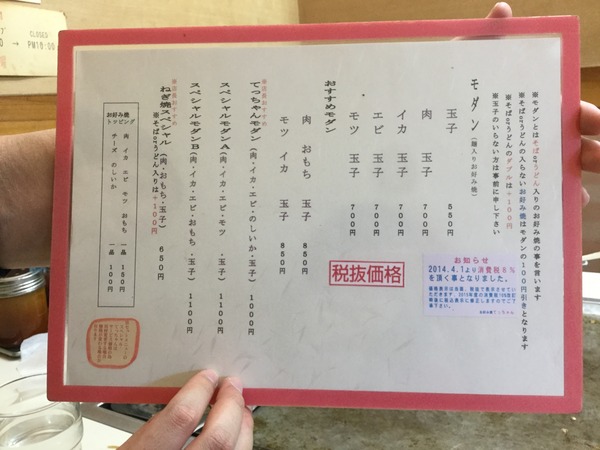 ※モダンとはそばorうどん入りのお好み焼の事を言います
※そばorうどんの入らないお好み焼はモダンの100円引きとなります
※そばorうどんのダブルは+100円
※玉子のいらない方は事前に申し下さい
モダン(麺入りお好み焼)
玉子 550
肉 玉子 700円
イカ 玉子 700円
エビ 玉子 700円
モツ 玉子 700円
おすすめモダン
肉 おもち 玉子 850円
モツ イカ 玉子 850円
※店長おすすめ
てっちゃんモダン(肉・イカ・エビ・のしいか・玉子) 1000円
スペシャルモダンA(肉・イカ・エビ・モツ・玉子) 1100円
スペシャルモダンB(肉・イカ・エビ・おもち・玉子) 1100円
※店長おすすめ
ねぎ焼スペシャル(肉・おもち・玉子) 650円
※そばorうどん入りは+100円
お好み焼
トッピング
肉 イカ エビ モツ おもち 一品 150円
チーズ、のしいか 一品 100円
税抜価格
お知らせ
2014.4.1より消費税8%
を頂く事となりました。
CLOSED
→ PM16:00